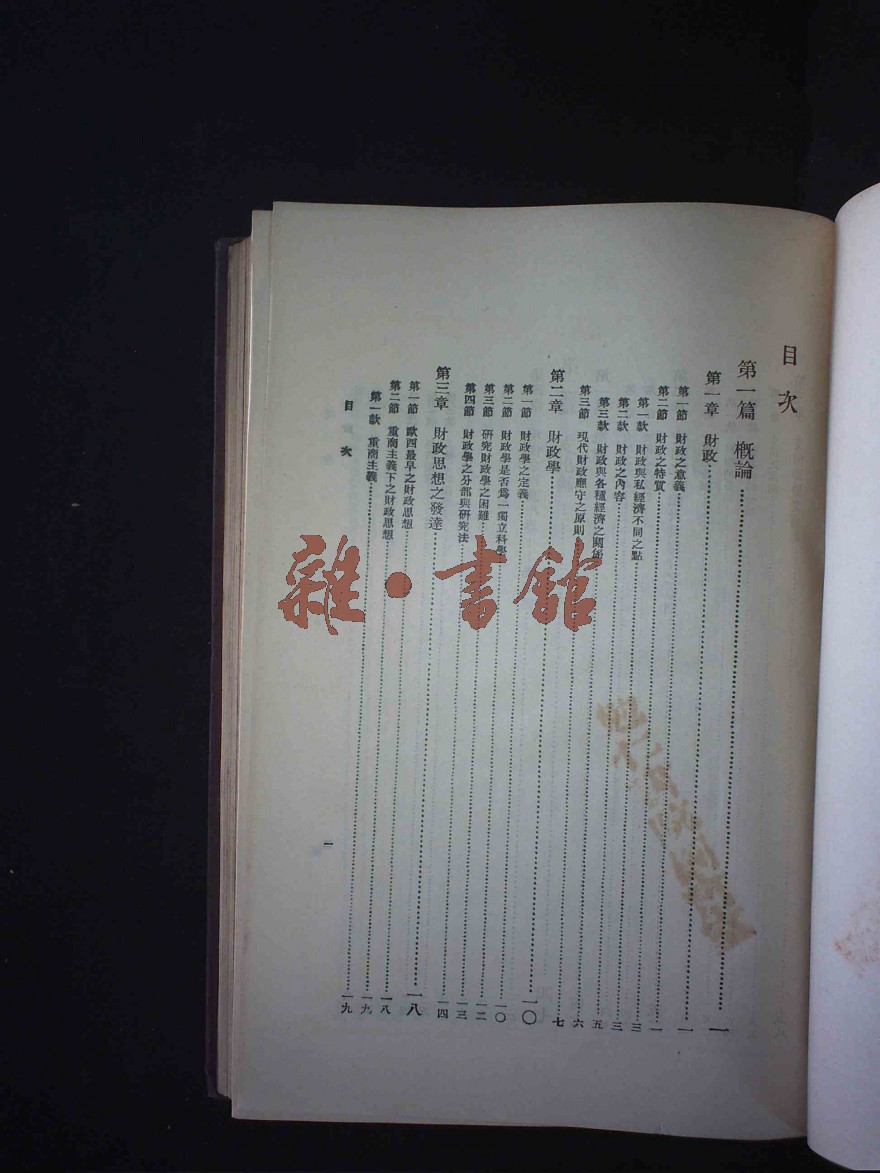 目次
第一篇 概論……一
第一章 財政……一
第一節 財政之意義……一
第二節 財政之特質……三
第一款 財政與私經濟不同之點……三
第二款 財政之內容……五
第三款 財政與各種經濟之關係……六
第三節 現代財政應守之原則……七
第二章 財政學……一〇
第一節 財政學之定義……一〇
第二節 財政學是否爲一獨立科學……一二
第三節 研究財政學之困難……一三
第四節 財政學之分部與研究法……一四
第三章 財政思想之發達……一八
第一節 歐西最早之財政思想……一八
第二節 重商主義下之財政思想……一九
第一款 重商主義……一九
目次
一
雜·書館